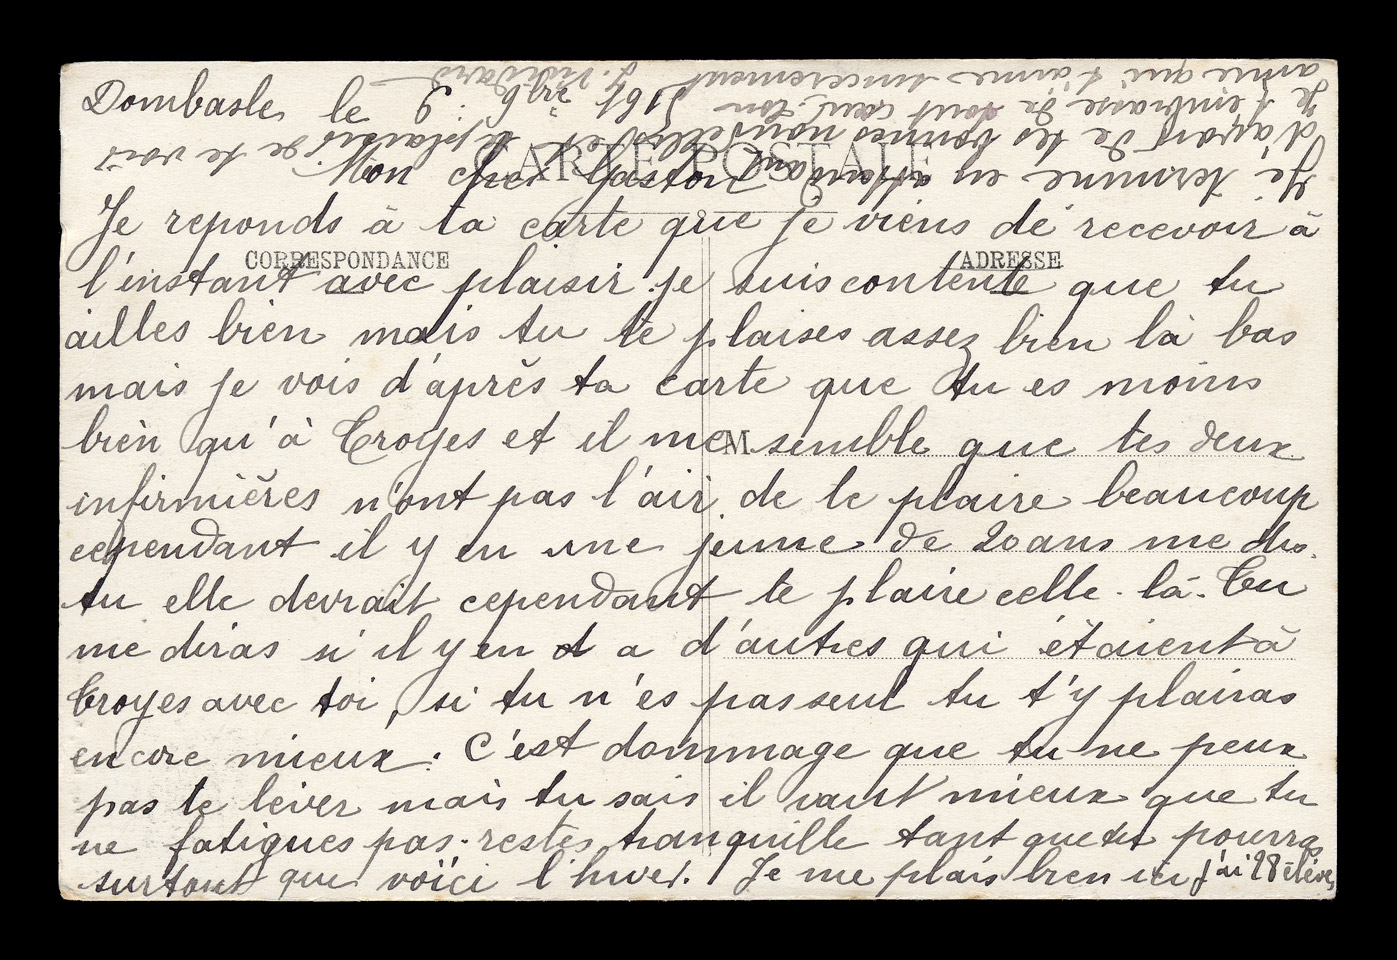 Dombasle le 9. 9bre 1915
CARTE POSTALE
Mon cher Gaston
Je reponds à ta carte que je viens de recevoir à
CORRESPONDANCE
ADRESSE
l'instant avec plaisir je suis contente que tu
ailles bien mais tu te plaises assez bien là bas
mais je vois d'après ta carte que tu es moins
bien qu'à Troyes et il me semble que tes deux
M
infirmières n'ont pas l'air de te plaire beaucoup
cependant il y en une jeune de 20 ans me dis.
tu elle devrait cependant te plaire celle-là. Tu
me diras si il y en a d'autres qui étaient à
Troyes avec toi, si tu n'es pas seul tu t'y plairas
encore mieux. C'est dommage que tu ne peux
pas te lever mais tu sais il vaut mieux que tu
ne fatigues pas. restes tranquille tant que tu pourras
surtout que voïci l'hiver. Je me plais bien ici j'ai 28 élèves
Je termine en attendant le plaisir de te voir
d'avoir de tes bonnes nouvelles et
Je t'embrasse de tout cœur. ton
amie qui t'aime sincerement